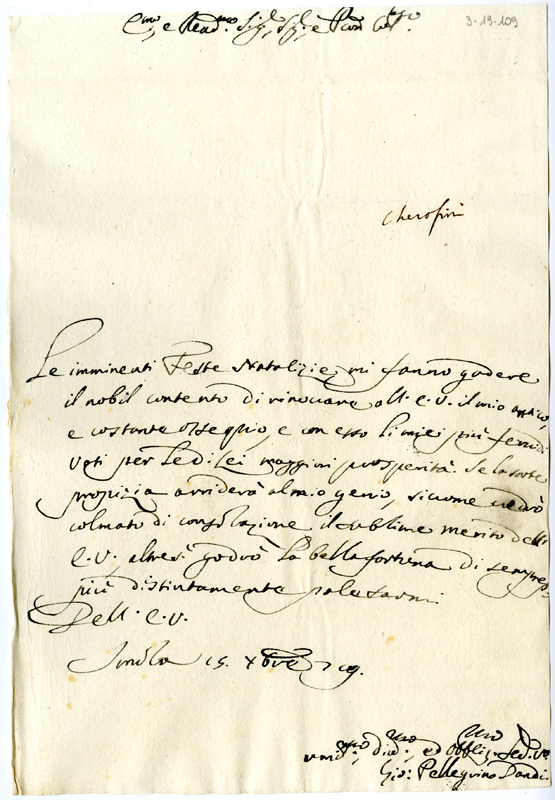 Em.mo, e Rend.mo Sig.r, Sig.r, e Pron Col.mo.
3-19-109
Cherofini
Le imminenti Feste Natalizie, mi fanno godere
il nobil contento di rinovare all'E.V. il mio antico,
e costante ossequio, e con esso li miei più fervidi
voti per le di lei maggiori prosperità. Se la sorte
propizia arriderà al mio genio, sicome vedrò
colmato di consolazione il sublime merito dell'
E.V., altresì godrò la bella fortuna di sempre
più distintamente palesarmi
Dell'E.V.
Imola 15. Xbre 719.
Um.mo, div.mo, ed Obblig.mo Sed.re Ve
Gio: Pellegrino Dandi